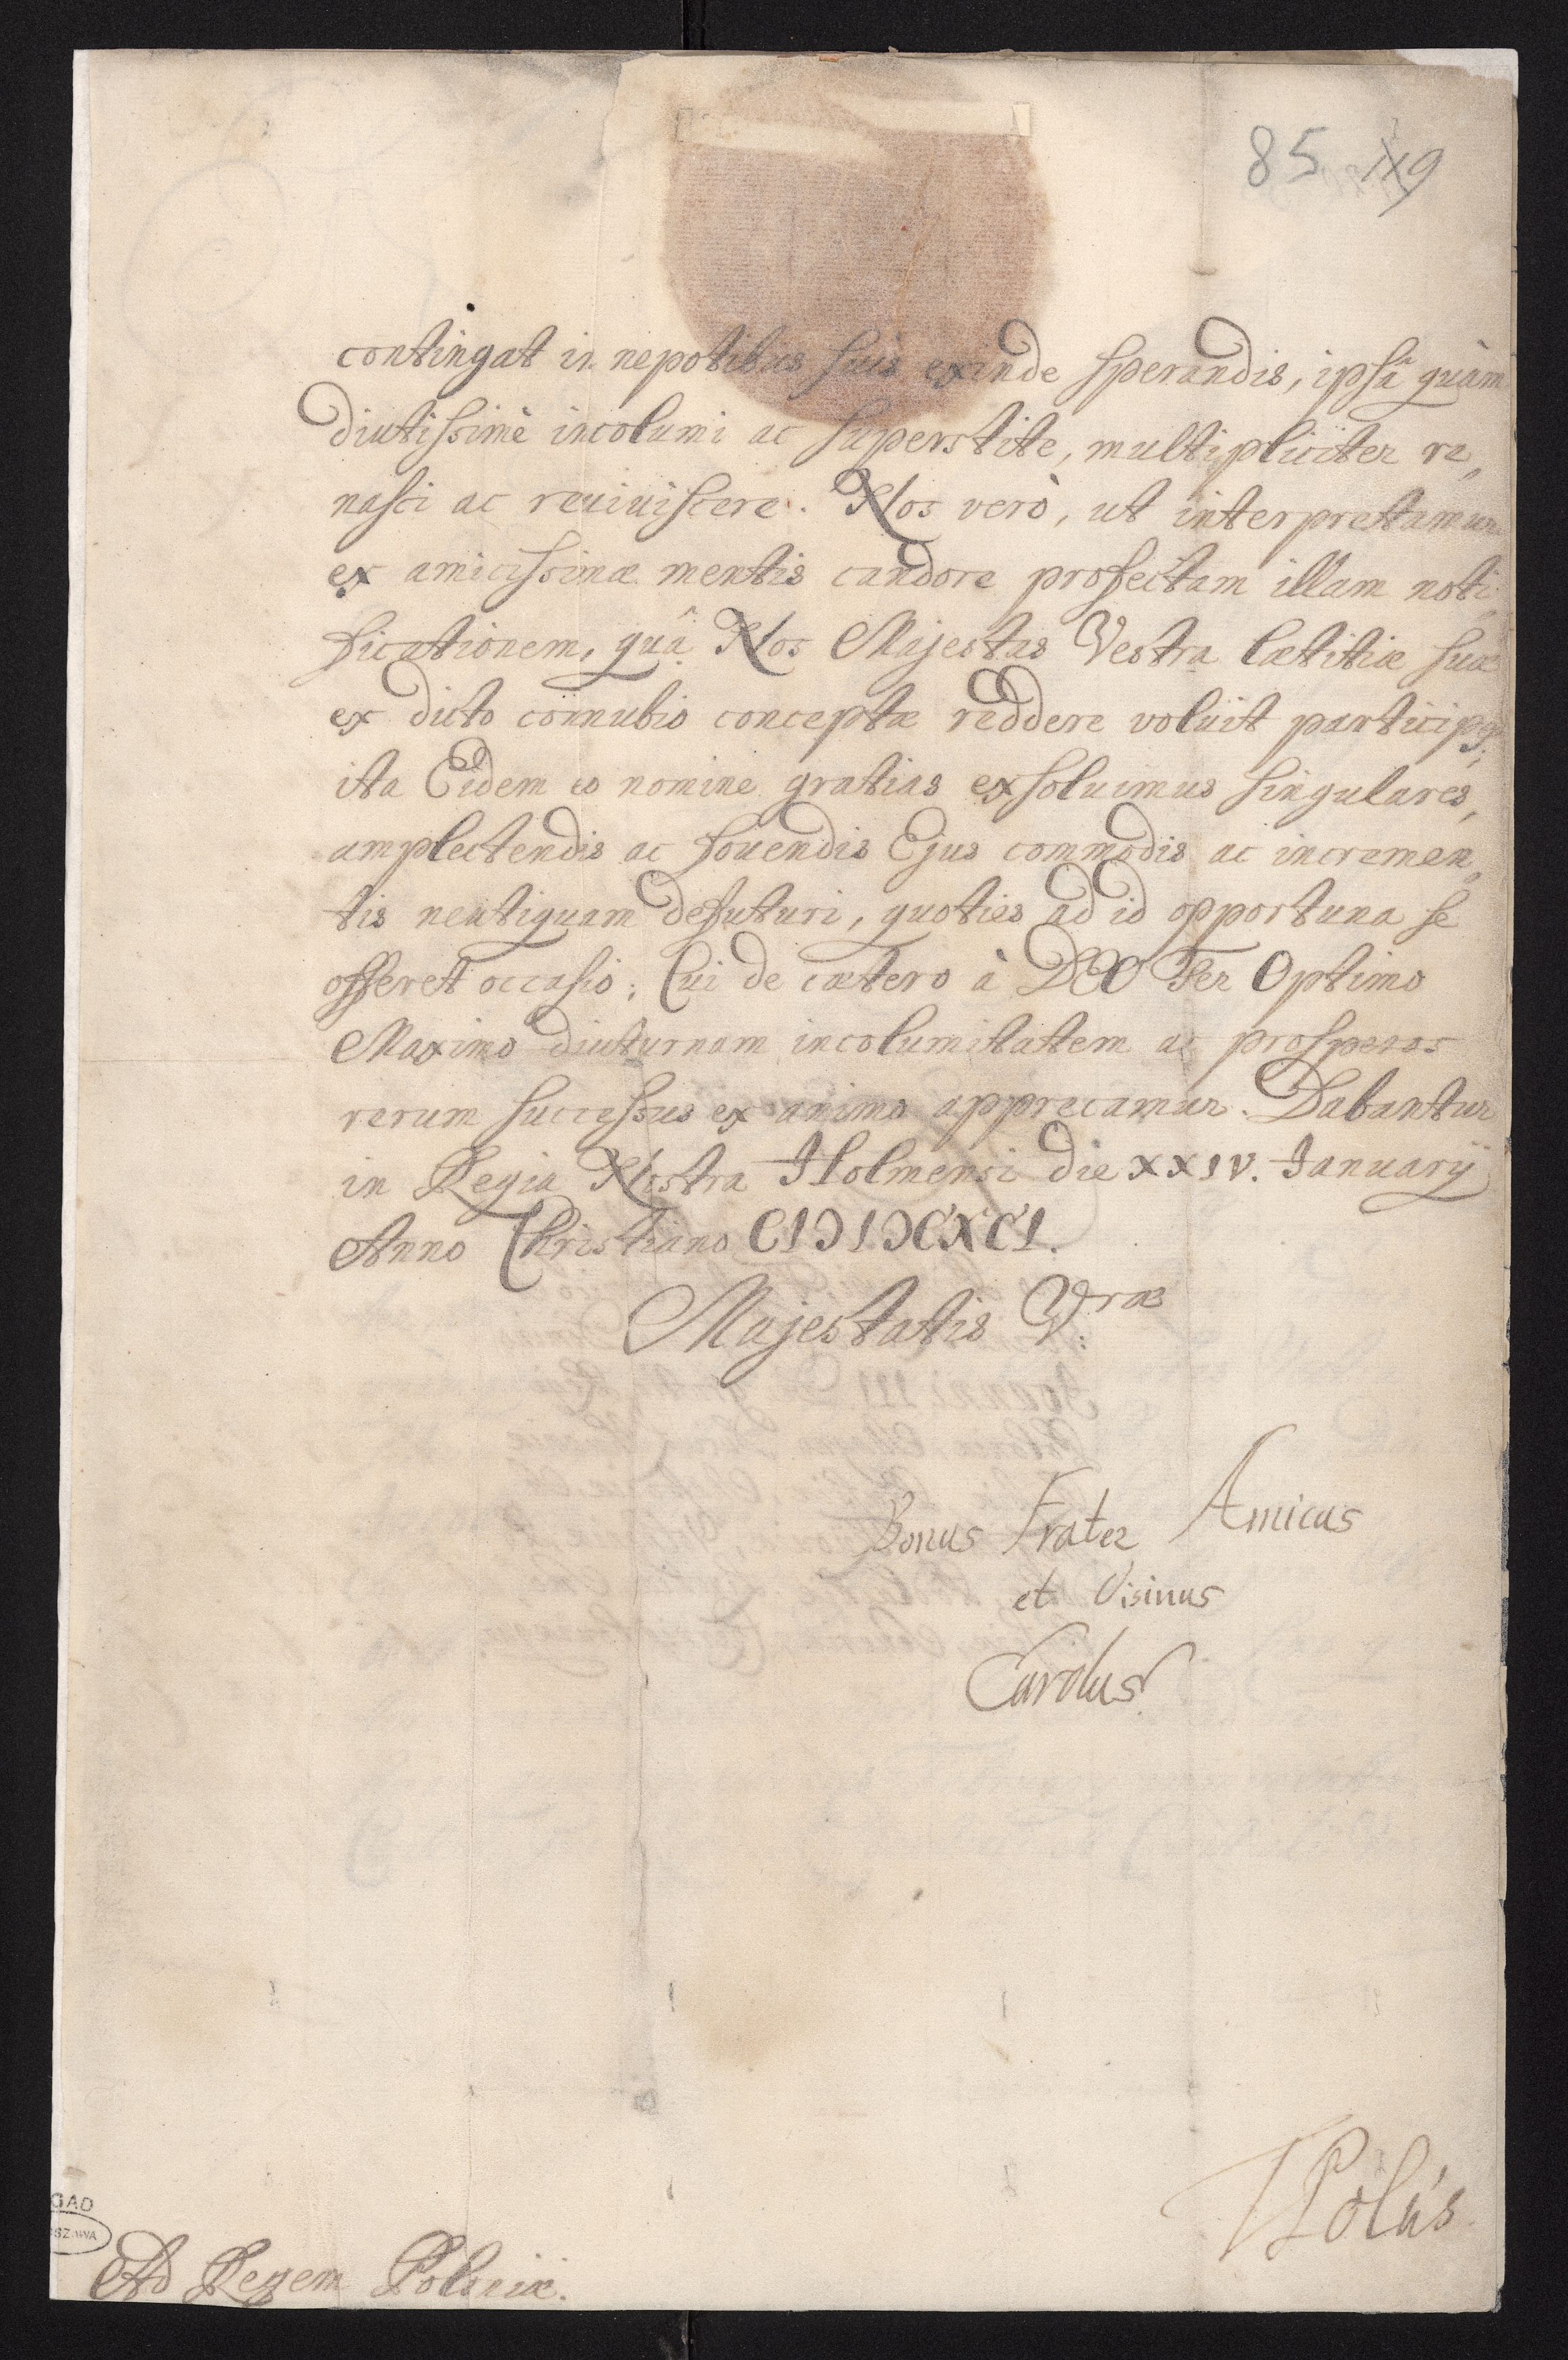 85 119
contingat in nepotibus suis exinde sperandis, ipsâ quàm
diutissimè incolumi ac superstite, multipliciter re,
nasci ac reuiuiscere. Nos verò, ut interpretamur
ex amicissimæ mentis candore profectam illam noti,
ficationem, quâ Nos Majestas Vestra lætitiæ suæ
ex dicto connubio conceptæ reddere voluit participes;
ita Eidem eo nomine gratias exsoluimus singulares,
amplectendis ac fouendis Ejus commodis ac incremen,
tis neutiquam defuturi, quoties ad id opportuna se
offeret occasio; Cui de cætero à DEO Ter Optimo
Maximo diuturnam incolumitatem ac prosperos
rerum successus ex animo apprecamur. Dabantur
in Regia Nostra Holmensi die XXIV. Januarij
Anno Christiano CIƆIƆCXCI.
Majestatis V:ræ
Bonus Frater Amicus
et Visinus
Carolus
Polus
GAD
SZAWA
Ad Regem Poloniæ.